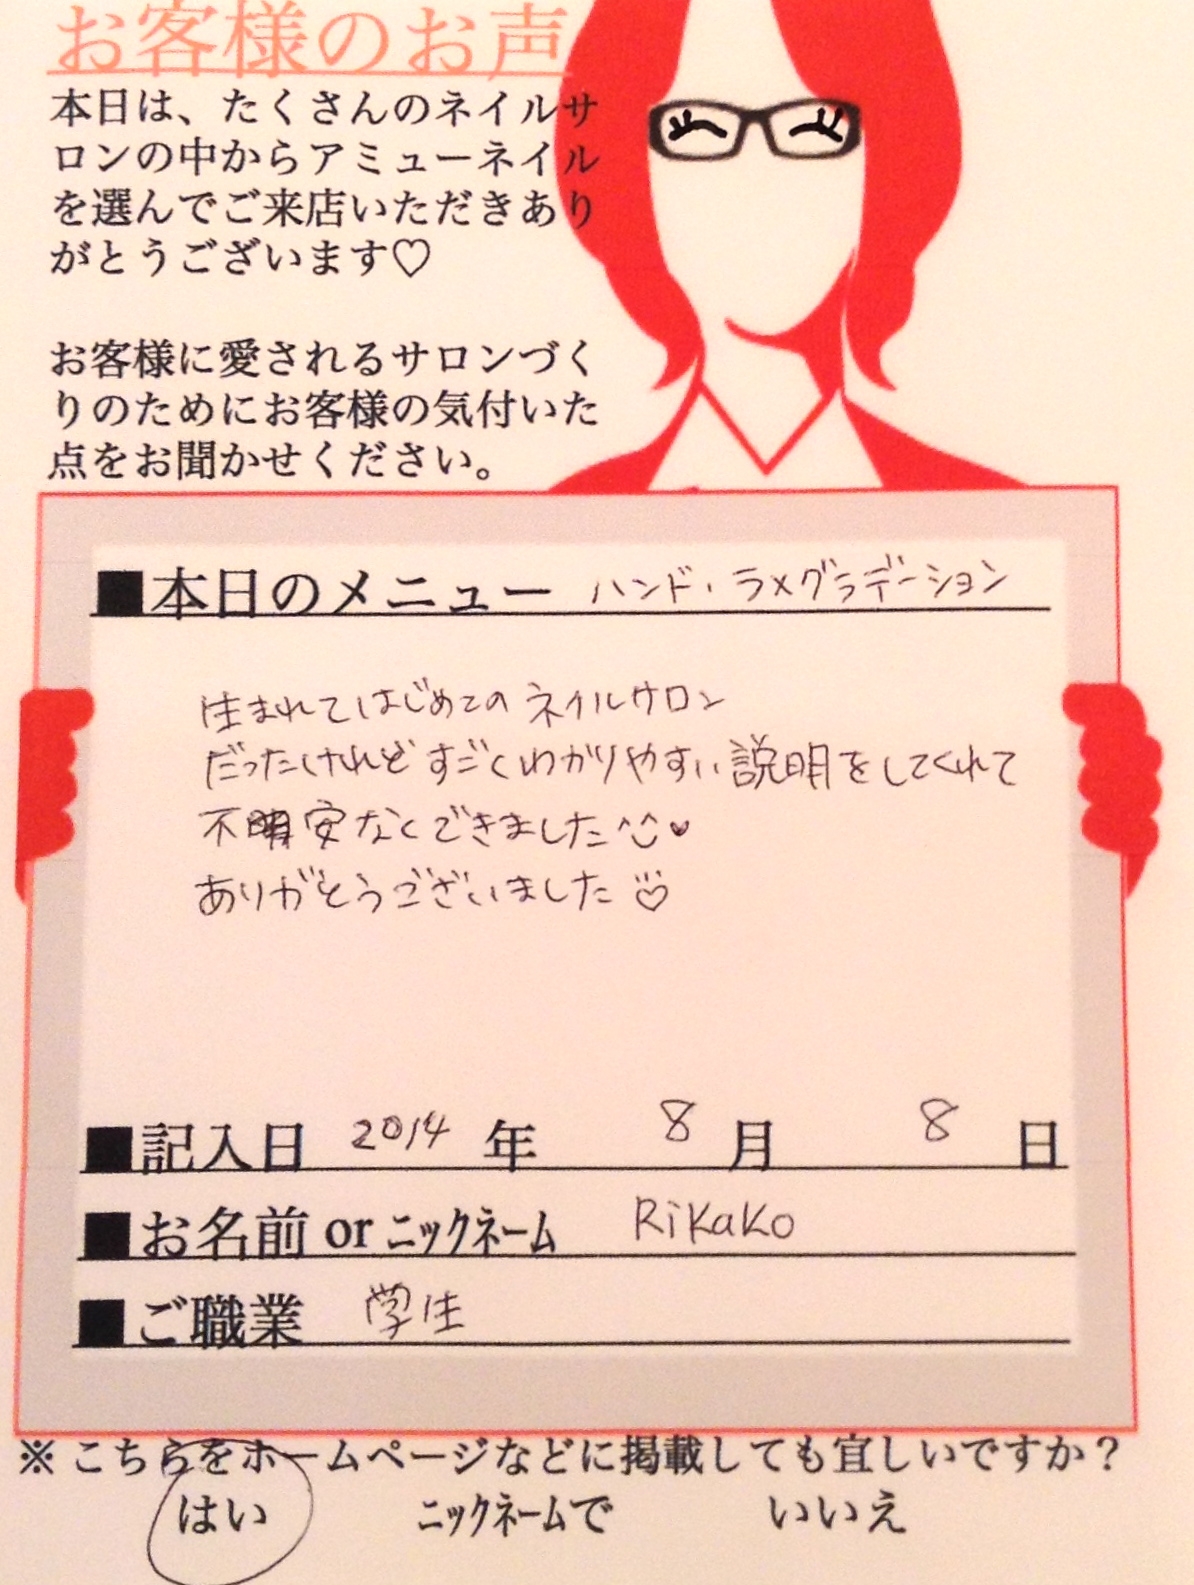 お客様のお声
本日は、たくさんのネイルサ
ロンの中からアミューネイル
を選んでご来店いただきあり
がとうございます♡
お客様に愛されるサロンづく
りのためにお客様の気付いた
点をお聞かせください。
■本日のメニュー ハンド・ラメグラデーション
生まれてはじめてのネイルサロン
だったけれどすごくわかりやすい説明をしてくれて
不安なくできました
ありがとうございました
■記入日 2014 年 8 月 8 日
■お名前 or ニックネーム RiKaKo
■ご職業 学生
※こちらをホームページなどに掲載しても宜しいですか？
はい ニックネームで いいえ